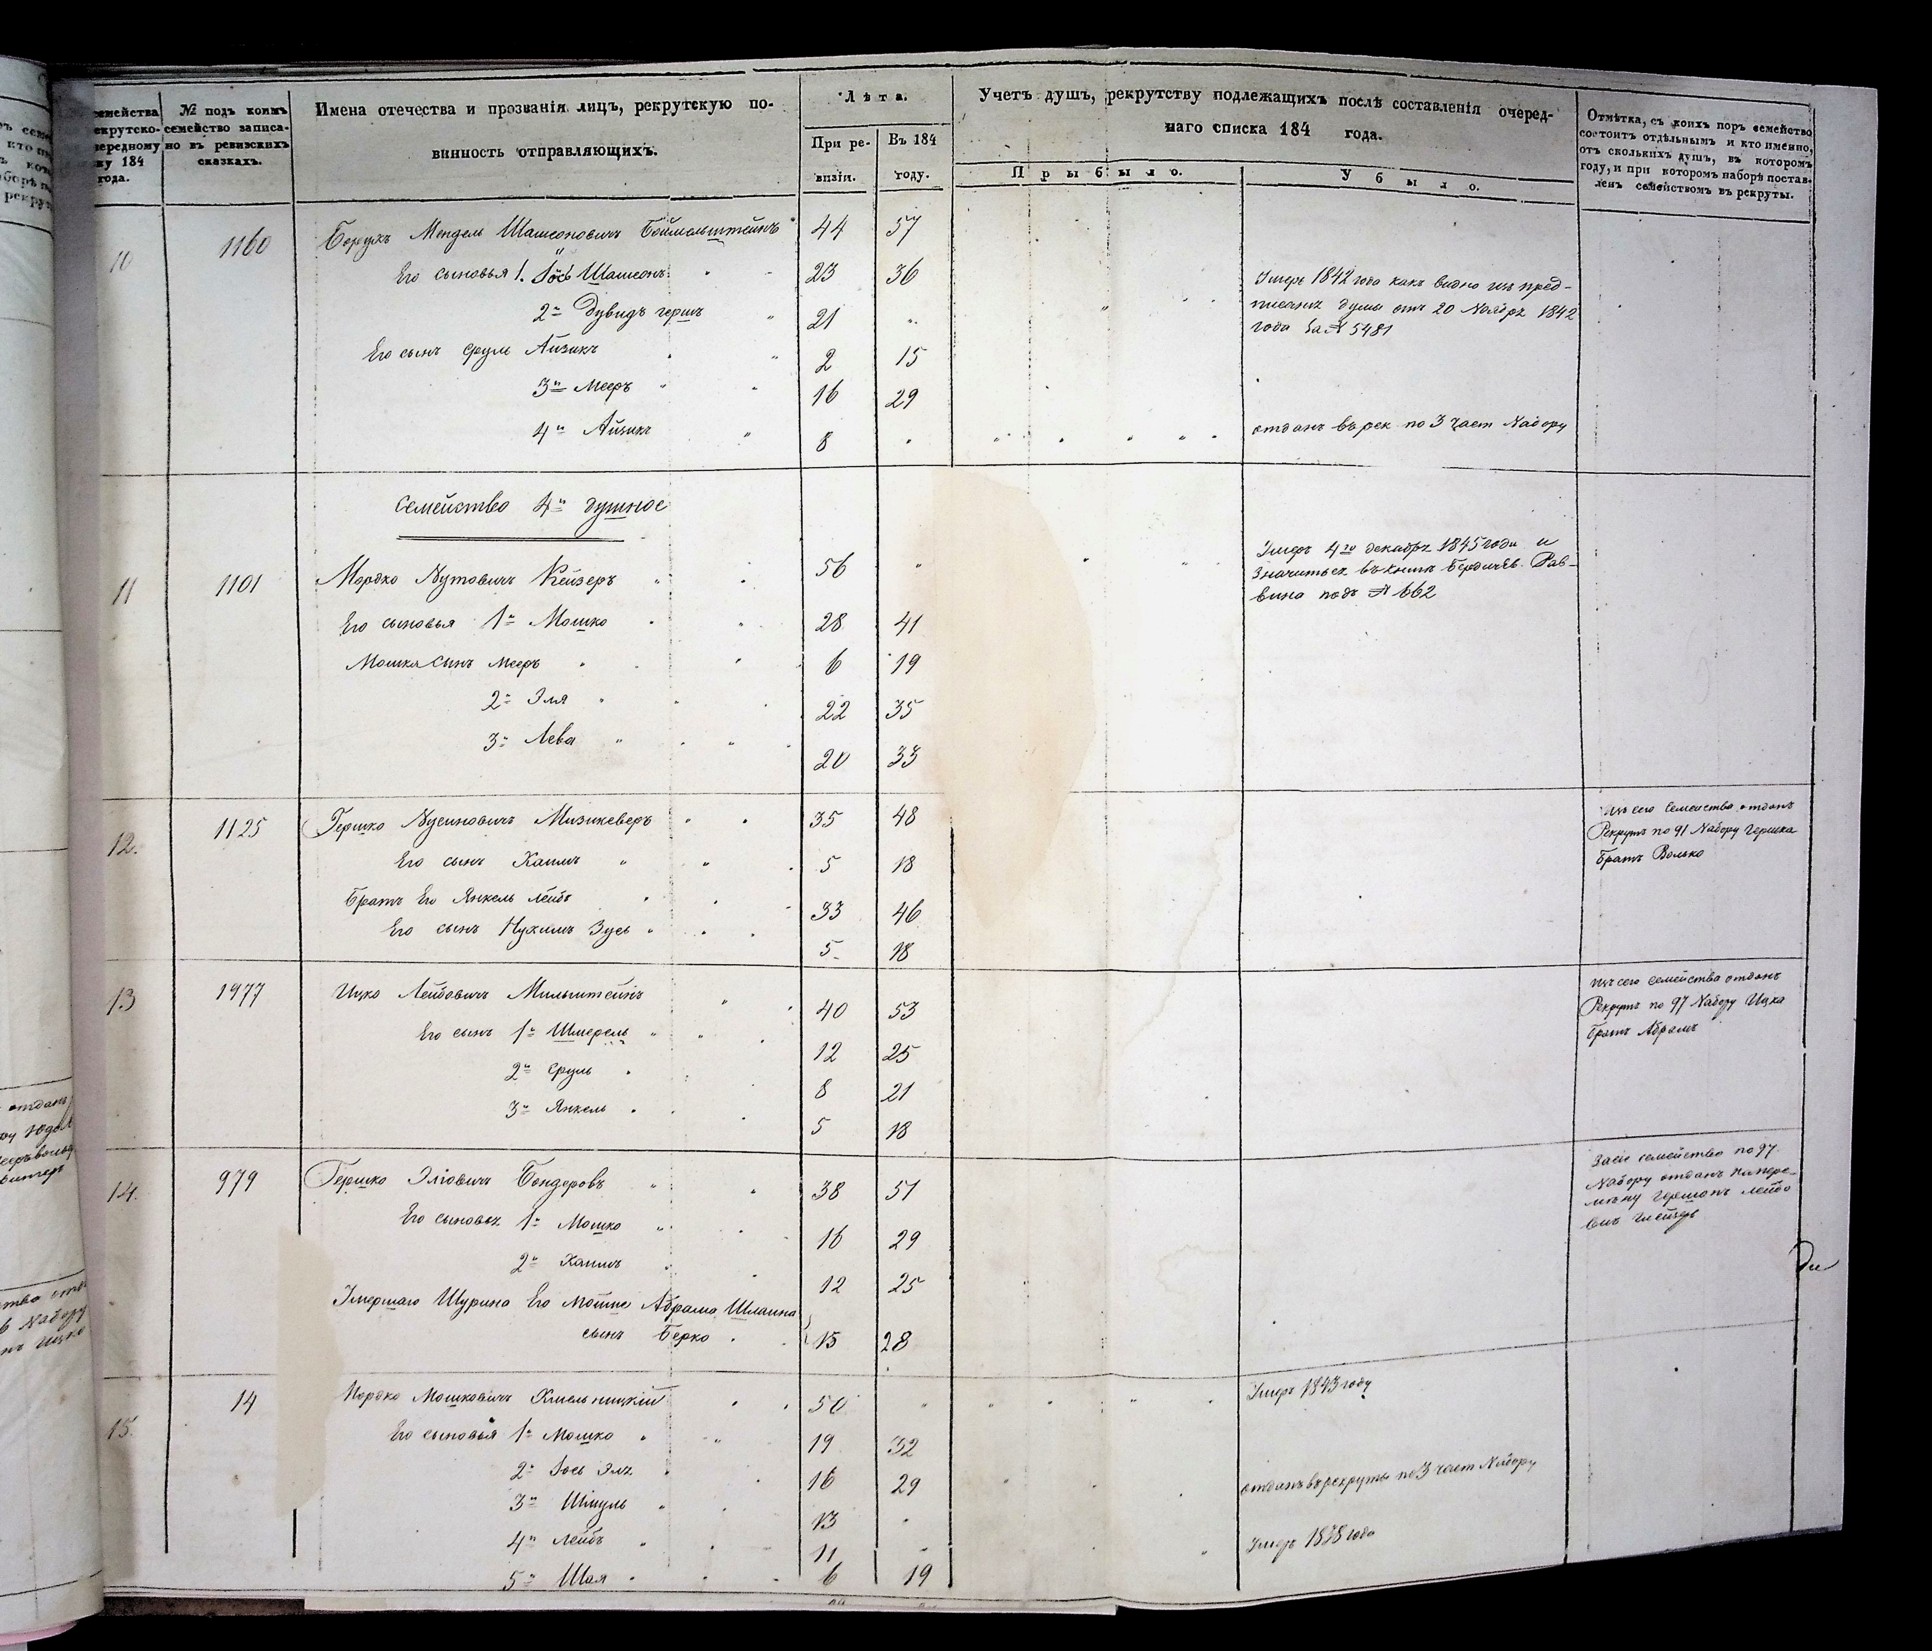 семейства
рекрутско-
очередному
ку 184
года.
№ подъ коимъ
семейство записа-
но въ ревизскихъ
сказкахъ.
Имена отечества и прозванія лицъ, рекрутскую по-
винность отправляющихъ.
Лѣта.
При ре-
визіи.
Въ 184
году.
Учетъ душъ, рекрутству подлежащихъ послѣ составленія очеред-
наго списка 184 года.
Прыбыло.
Убыло.
Отмѣтка, съ коихъ поръ семейство
состоитъ отдѣльнымъ и кто именно,
отъ сколькихъ душъ, въ которомъ
году, и при которомъ наборѣ постав-
ленъ семействомъ въ рекруты.
10 1160 Борухъ Мендель Шамсоновичъ Боймельштейнъ 44 57
Его сыновья 1. Іось Шамсонъ 23 36
2й Дувидъ Гершъ 21
Умеръ 1842 года какъ видно изъ пред-
писанія думы отъ 20 Ноября 1842
года За № 5481
Его сынъ Сруль Айзикъ 2 15
3й Мееръ 16 29
4й Айзикъ 8 отданъ въ рек по 3 част Набору
Семейство 4й душное
11 1101 Мордко Нутовичъ Кейзеръ 56
Умеръ 4го декабря 1845 года и
Значиться въ книгѣ Бердичев. Рав-
вина подъ № 662
Его сыновья 1й Мошко 28 41
Мошка Сынъ Мееръ 6 19
2й Эля 22 35
3й Лейба 20 33
12. 1125 Гершко Зусиновичъ Мизикеверъ 35 48
Его сынъ Хаимъ 5 18
Братъ Его Янкель Лейбъ 33 46
Его сынъ Нухимъ Зусь 5 18
Изъ сего Семейства отданъ
Рекрутъ по 91 Набору Гершка
Братъ Волько
13 1977 Ицко Лейбовичъ Мильштейнъ 40 53
Его сынъ 1й Шмерель 12 25
2й Сруль 8 21
3й Янкель 5 18
Изъ сего Семейства отданъ
Рекрутъ по 97 Набору Ицка
Братъ Абрамъ
14. 979 Гершко Эліовичъ Бондеровъ 38 51
Его сыновья 1й Мошко 16 29
2й Хаимъ 12 25
Умершаго Шурина Его Абрама
сынъ Берко 15 28
За сіе семейство по 97
Набору отданъ на пере-
мѣну Гершонъ Лейбо
вичъ
15. 14 Мордко Мошковичъ Хмельницкій 50 Умеръ 1843 году
Его сыновья 1й Мошко 19 32
2й Іось Эля 16 29
3й Шмуль 13 отданъ въ рекруты по 3 част Набору
4й Лейбъ 11 Умеръ 1838 года
5й Шая 6 19